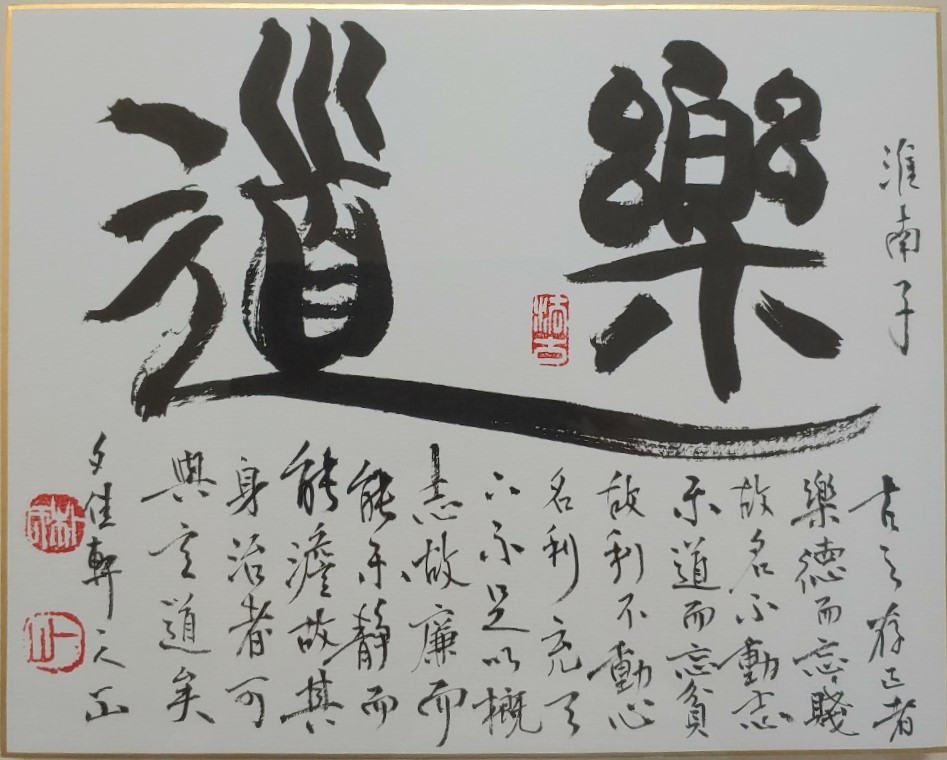 淮南子
樂道
古之存己者
樂德而忘賤
故名不動志
乐道而忘貧
故利不動心
名利充天
下不足以概
志故廉而
能乐靜而
能澹故其
身治者可
與言道矣
夕佳軒人正